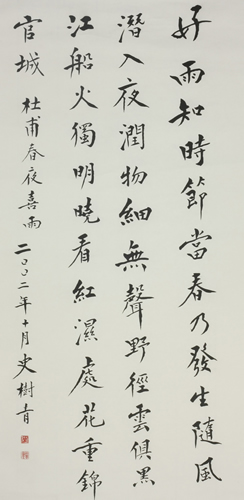 好雨知時節當春乃發生隨風
潛入夜潤物細無聲野徑雲俱黑
江船火獨明曉看紅濕處花重錦
官城 杜甫春夜喜雨 二〇〇二年十月史樹青